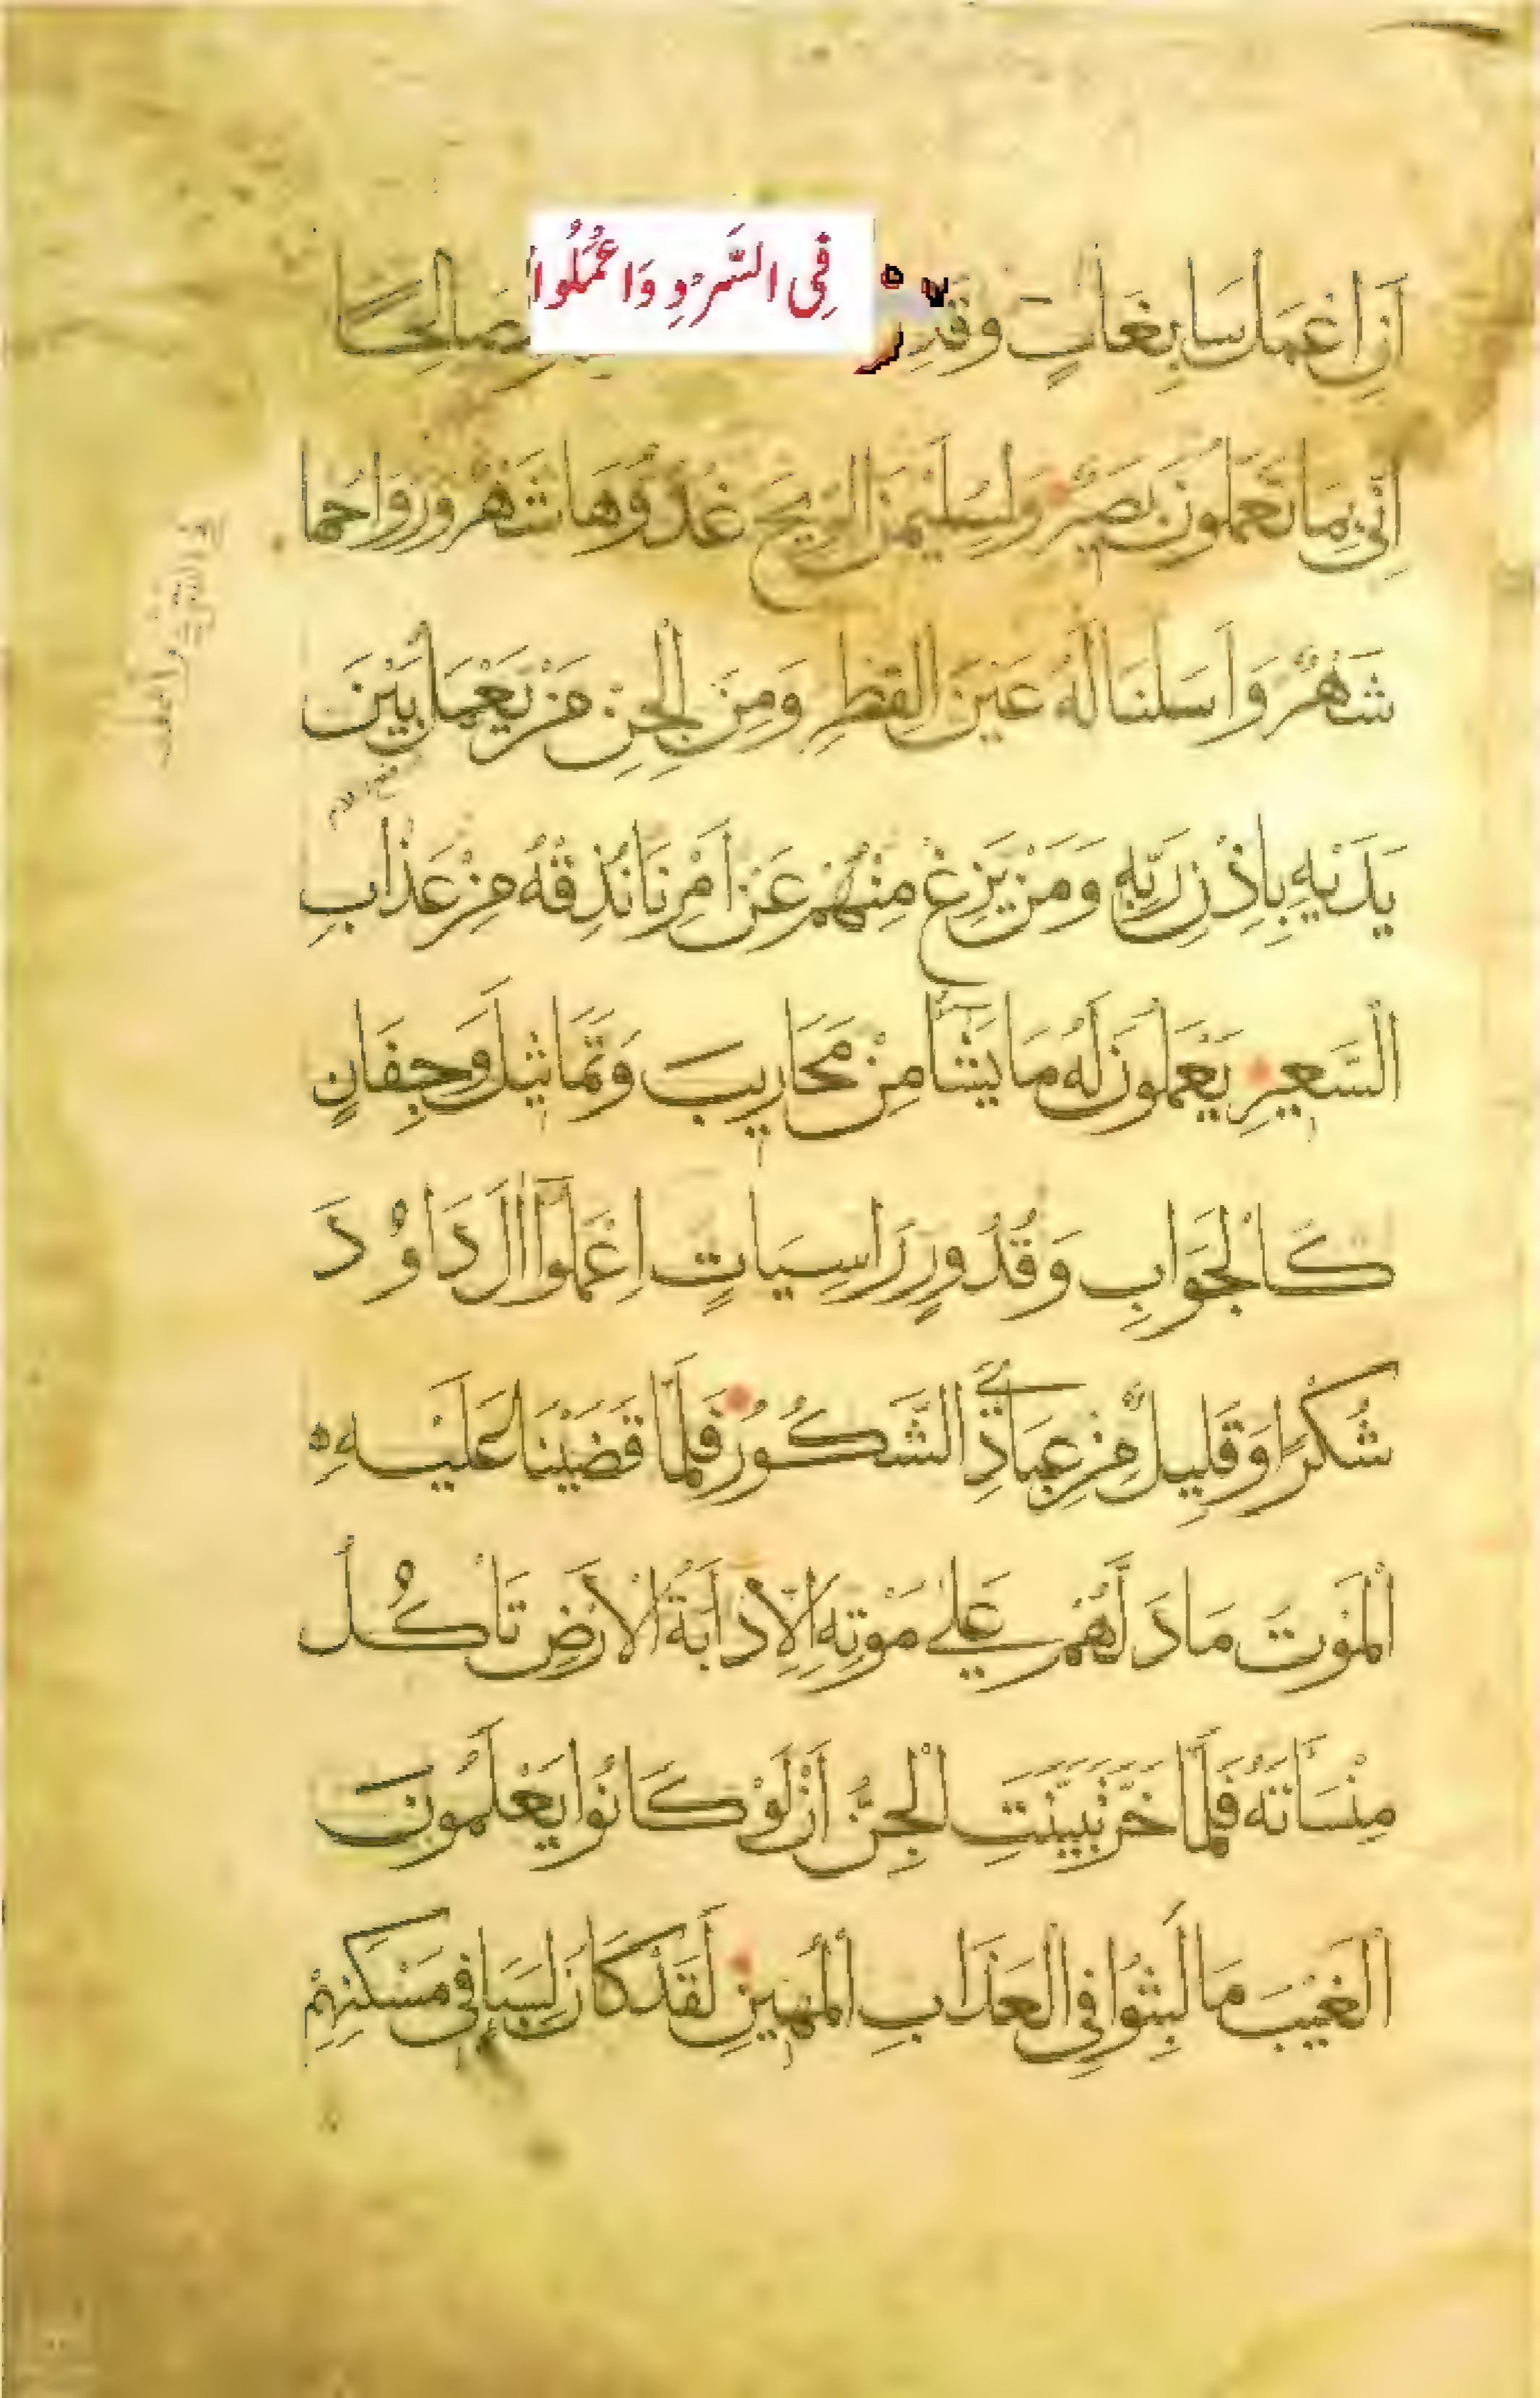 أَنِ اعْمَل سَابِغَاتٍ وَقَدِّرْ فِى السَّرْدِ وَاعْمَلُوا صَالِحًا
إِنِّي بِمَا تَعْمَلُونَ بَصِيرٌ وَلِسُلَيْمٰنَ الرِّيحَ غُدُوُّهَا شَهْرٌ وَرَوَاحُهَا
شَهْرٌ وَأَسَلْنَا لَهُ عَيْنَ الْقِطْرِ وَمِنَ الْجِنِّ مَنْ يَعْمَلُ بَيْنَ
يَدَيْهِ بِإِذْنِ رَبِّهِ وَمَنْ يَزِغْ مِنْهُمْ عَنْ أَمْرِنَا نُذِقْهُ مِنْ عَذَابِ
السَّعِيرِ يَعْمَلُونَ لَهُ مَا يَشَآءُ مِنْ مَحَارِيبَ وَتَمَاثِيلَ وَجِفَانٍ
كَالْجَوَابِ وَقُدُورٍ رَاسِيَاتٍ اعْمَلُوٓا اٰلَ دَاوُدَ
شُكْرًا وَقَلِيلٌ مِنْ عِبَادِيَ الشَّكُورُ فَلَمَّا قَضَيْنَا عَلَيْهِ
الْمَوْتَ مَا دَلَّهُمْ عَلٰى مَوْتِهِ إِلَّا دَابَّةُ الْأَرْضِ تَأْكُلُ
مِنْسَأَتَهُ فَلَمَّا خَرَّ تَبَيَّنَتِ الْجِنُّ أَنْ لَوْ كَانُوا يَعْلَمُونَ
الْغَيْبَ مَا لَبِثُوا فِي الْعَذَابِ الْمُهِينِ لَقَدْ كَانَ لِسَبَإٍ فِي مَسْكَنِهِمْ